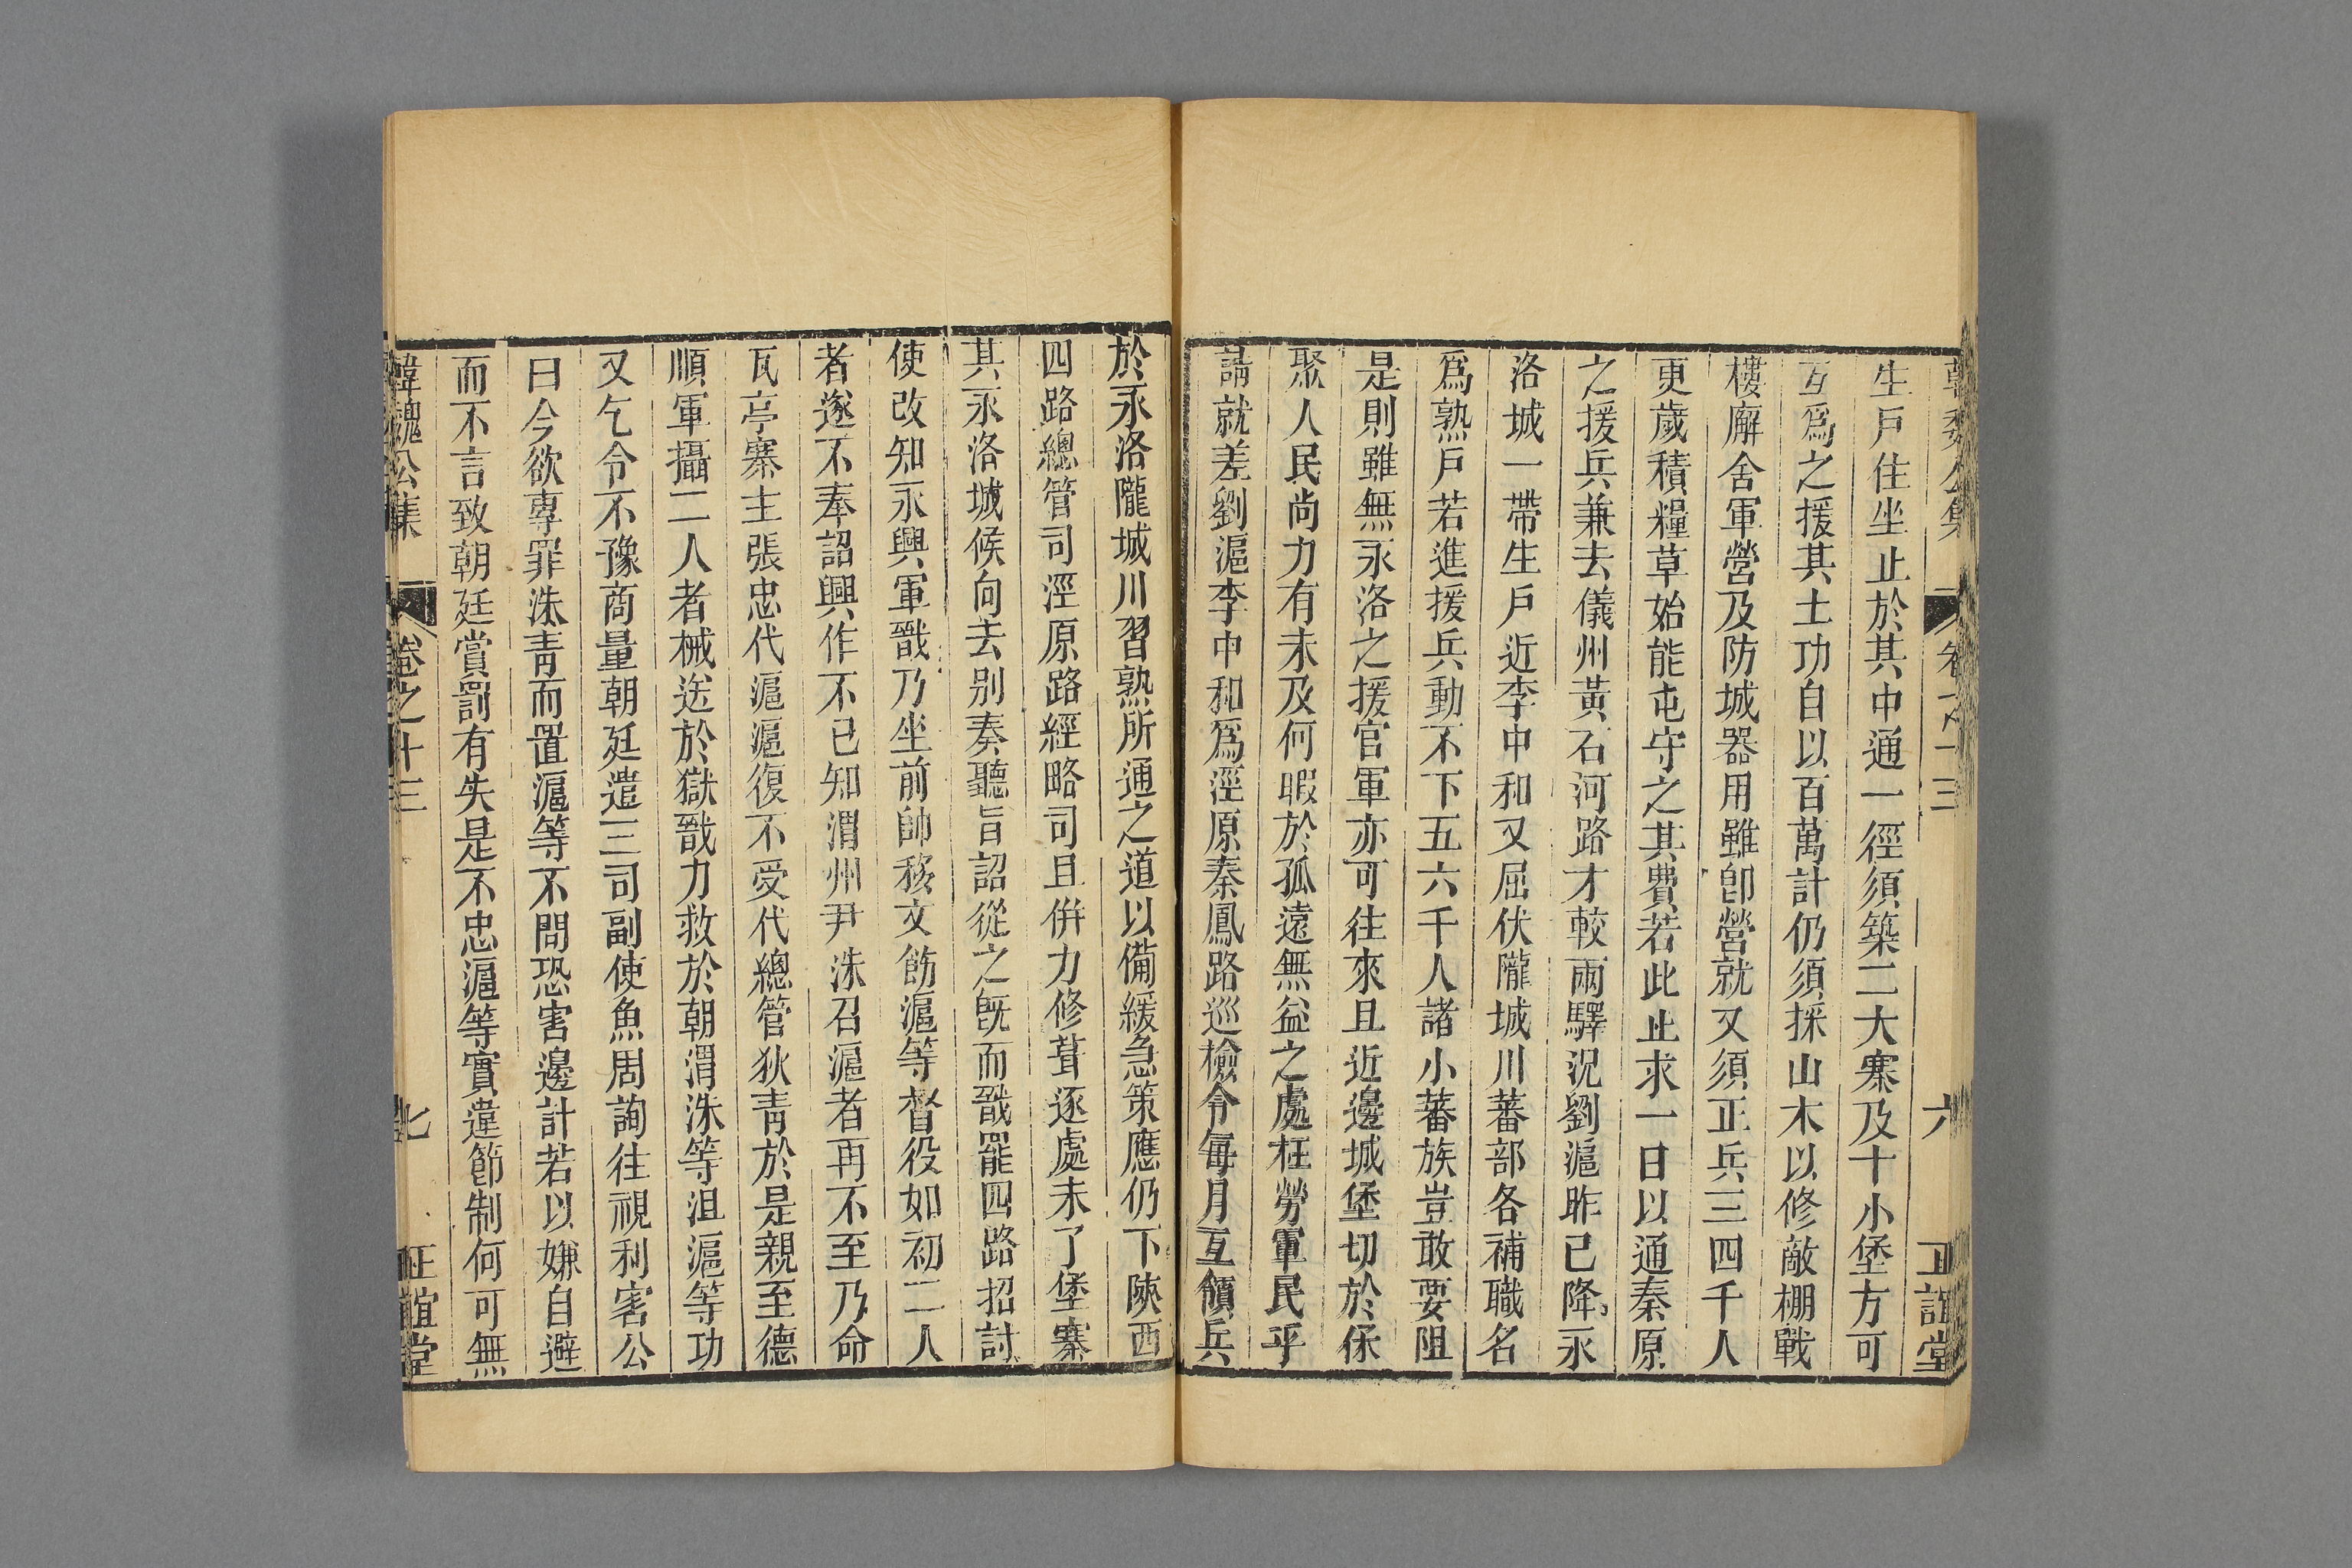 韓魏公集 卷之十三 六 正誼堂
生戶住坐止於其中通一徑須築二大寨及十小堡方可
互爲之援其土功自以百萬計仍須採山木以修敵棚戰
樓廨舍軍營及防城器用雖卽營就又須正兵三四千人
更歲積糧草始能屯守之其費若此止求一日以通秦原
之援兵兼去儀州黃石河路才較兩驛況劉滬昨已降永
洛城一帶生戶近李中和又屈伏隴城川蕃部各補職名
爲熟戶若進援兵動不下五六千人諸小蕃族豈敢要阻
是則雖無永洛之援官軍亦可往來且近邊城堡切於保
聚人民尚力有未及何暇於孤遠無益之處枉勞軍民乎
請就差劉滬李中和爲涇原秦鳳路巡檢令每月互領兵
於永洛隴城川習熟所通之道以備緩急策應仍下陝西
四路總管司涇原路經略司且併力修葺逐處未了堡寨
其永洛城候向去别奏聽旨詔從之旣而戩罷四路招討
使改知永興軍戩乃坐前帥移文飭滬等督役如初二人
者遂不奉詔興作不已知渭州尹洙召滬者再不至乃命
瓦亭寨主張忠代滬滬復不受代總管狄靑於是親至德
順軍攝二人者械送於獄戩力救於朝渭洙等沮滬等功
又乞令不豫商量朝廷遣三司副使魚周詢往視利害公
曰今欲專罪洙靑而置滬等不問恐害邊計若以嫌自避
而不言致朝廷賞罰有失是不忠滬等實違節制何可無
韓魏公集 卷之十三 七 正誼堂